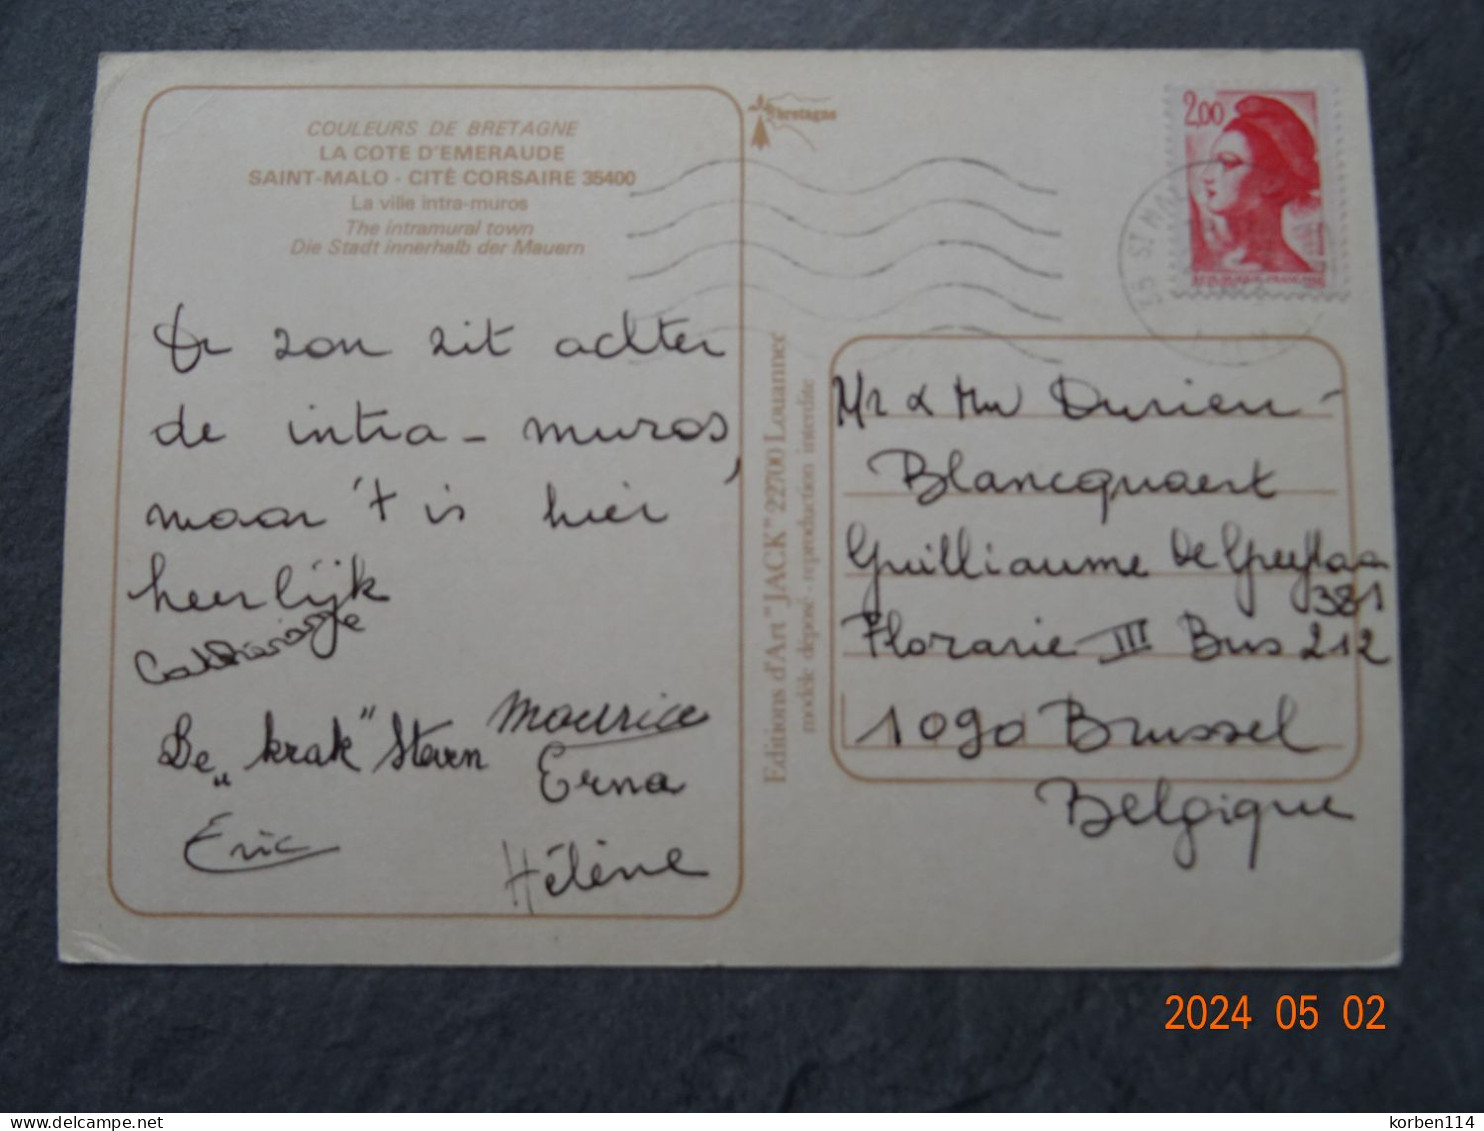 COULEURS DE BRETAGNE
LA COTE D'EMERAUDE
SAINT-MALO - CITÉ CORSAIRE 35400
La ville intra-muros
The intramural town
Die Stadt innerhalb der Mauern
De zon zit achter
de intra-muros,
maar 't is hier
heerlijk
De „krak" Steven
Maurice
Erna
Eric
Hélène
Editions d'Art "JACK" 22700 Louannec
modèle déposé - reproduction interdite
bretagne
2,00
35 ST MA
Mr & Mw Durieu-
Blancquaert
Guilliaume De
381
Florarie III Bus 212
1090 Brussel
Belgique
2024 05 02
korben114